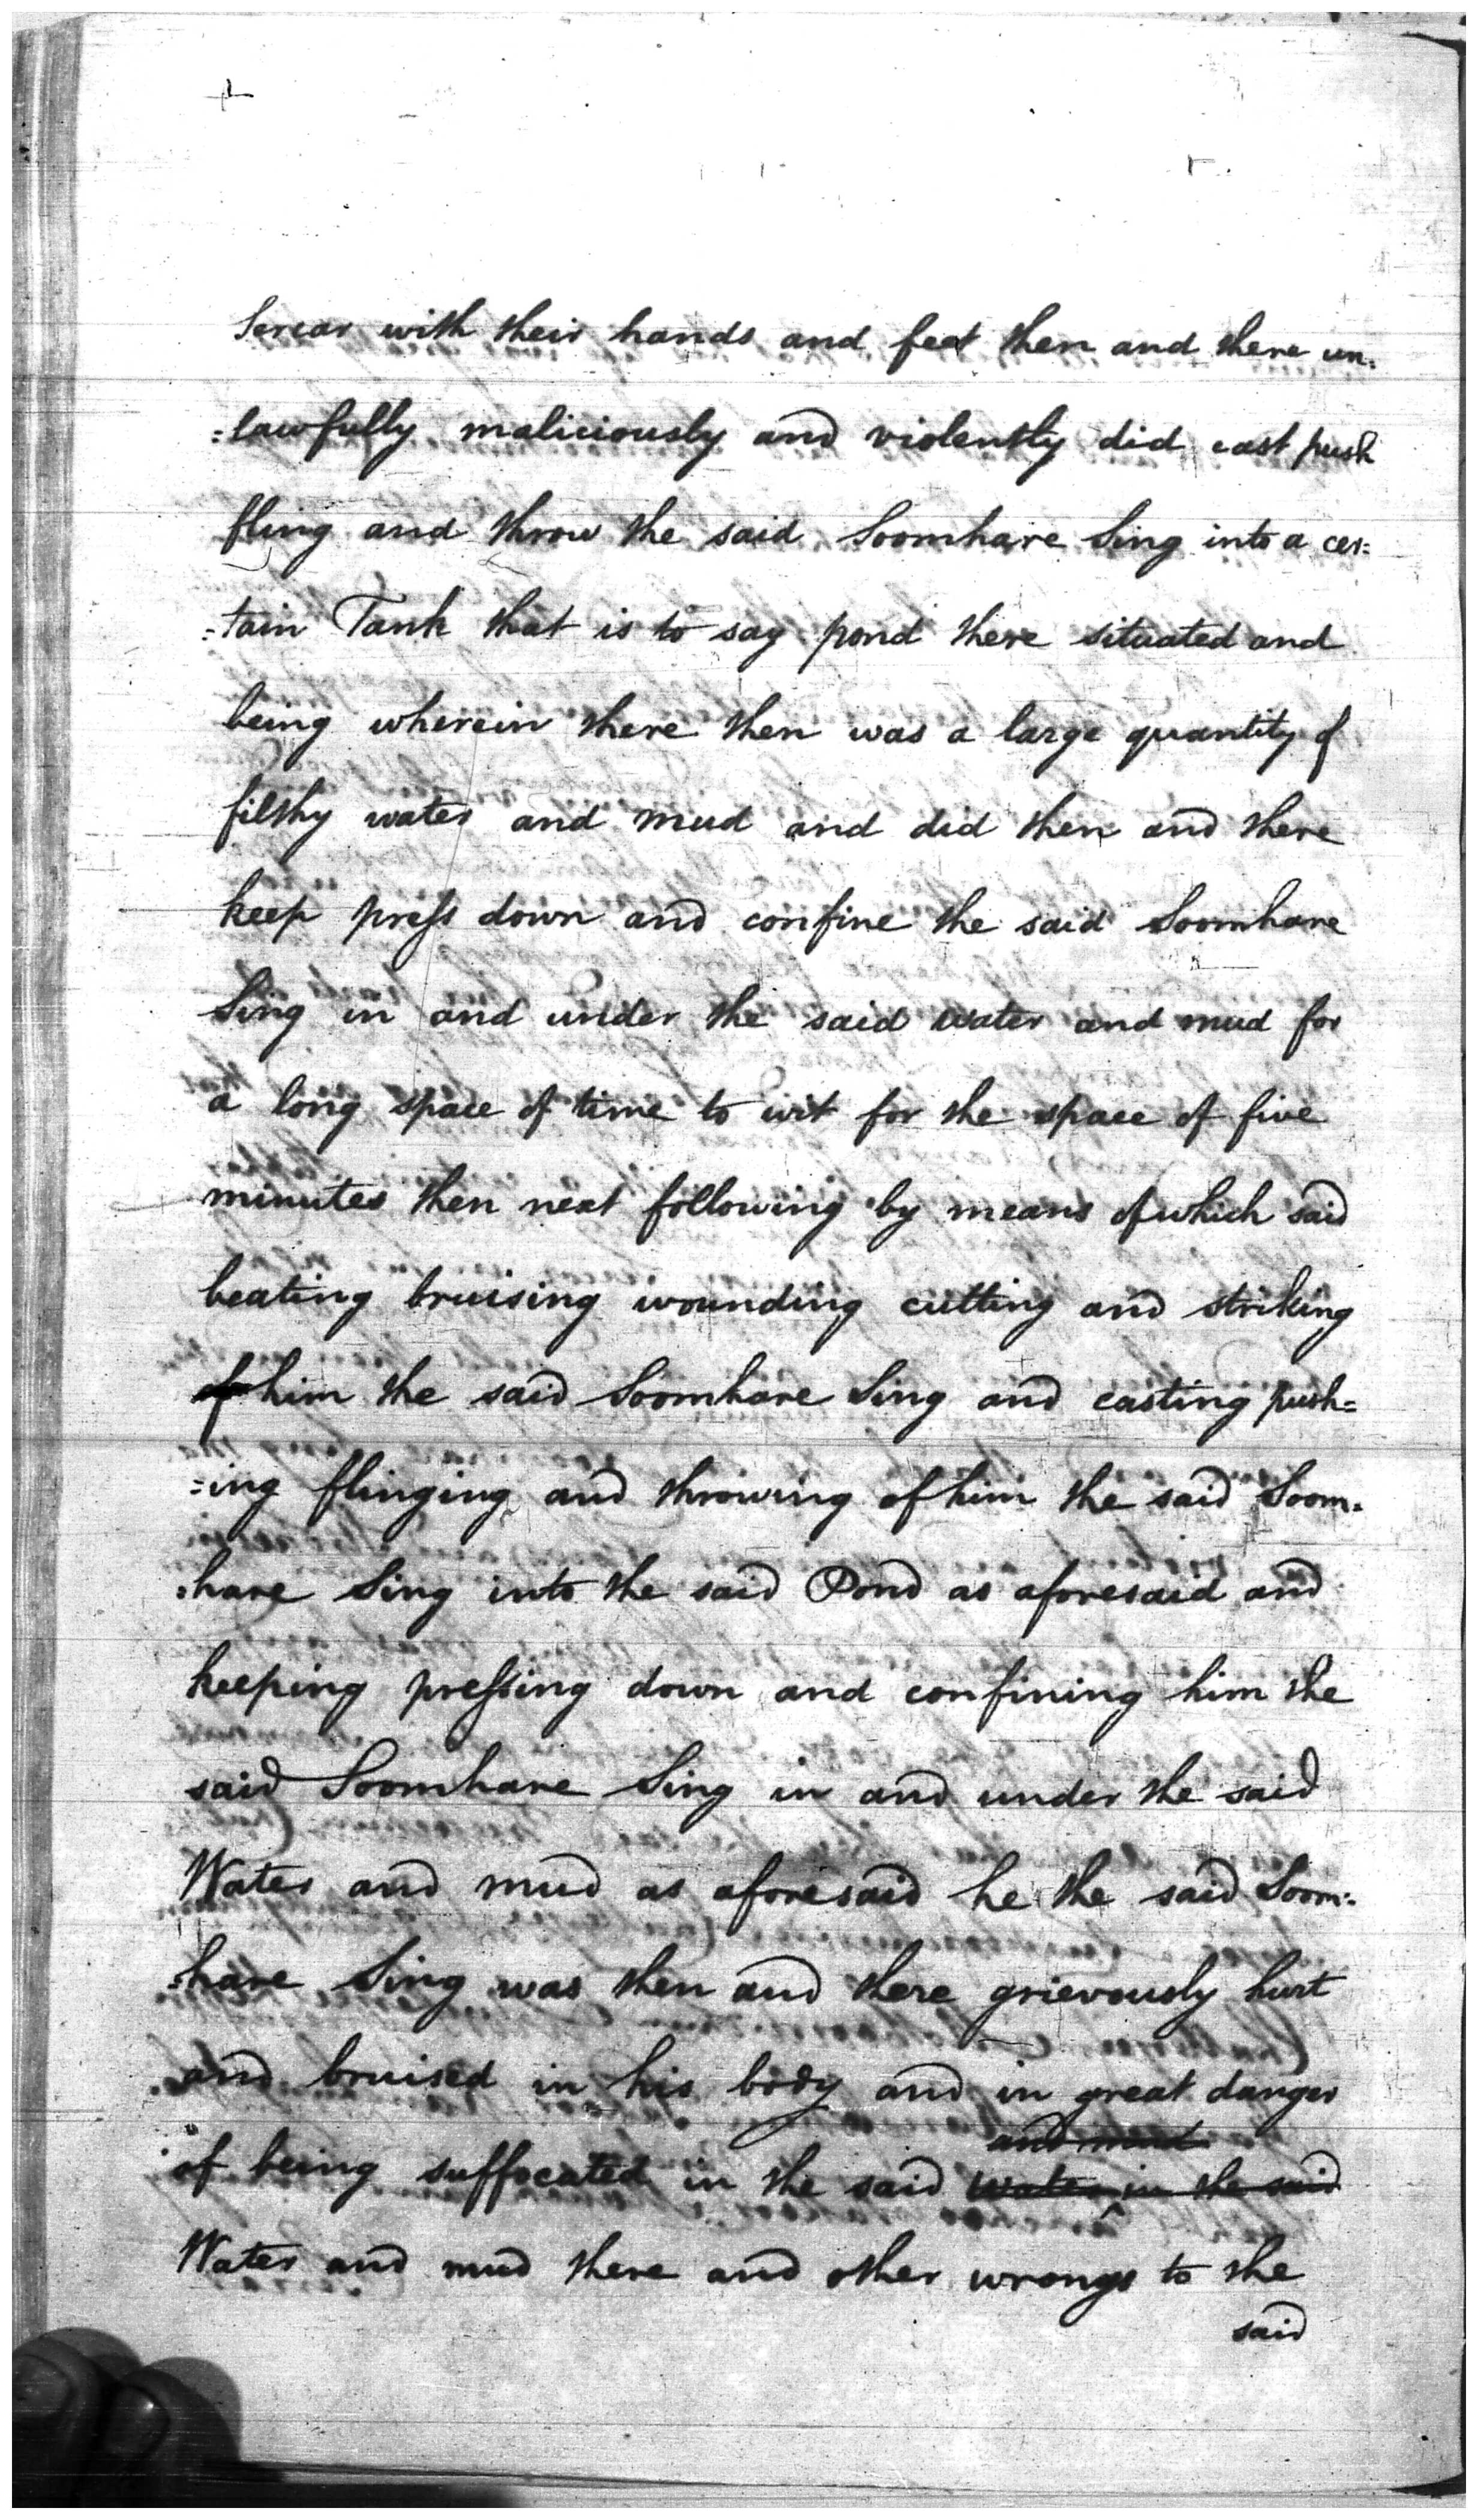 Sercar with their hands and feet then and there un=
=lawfully maliciously and violently did cast push
fling and throw the said Soomhare Sing into a cer=
=tain Tank that is to say pond there situated and
being wherein there then was a large quantity of
filthy water and mud and did then and there
keep press down and confine the said Soomhare
Sing in and under the said water and mud for
a long space of time to wit for the space of five
minutes then next following by means of which said
beating bruising wounding cutting and striking
of him the said Soomhare Sing and casting push=
=ing flinging and throwing of him the said Soom=
=hare Sing into the said Pond as aforesaid and
keeping pressing down and confining him the
said Soomhare Sing in and under the said
Water and mud as aforesaid he the said Soom=
=hare Sing was then and there grievously hurt
and bruised in his body and in great danger
and mud
of being suffocated in the said water in the said
Water and mud there and other wrongs to the
said